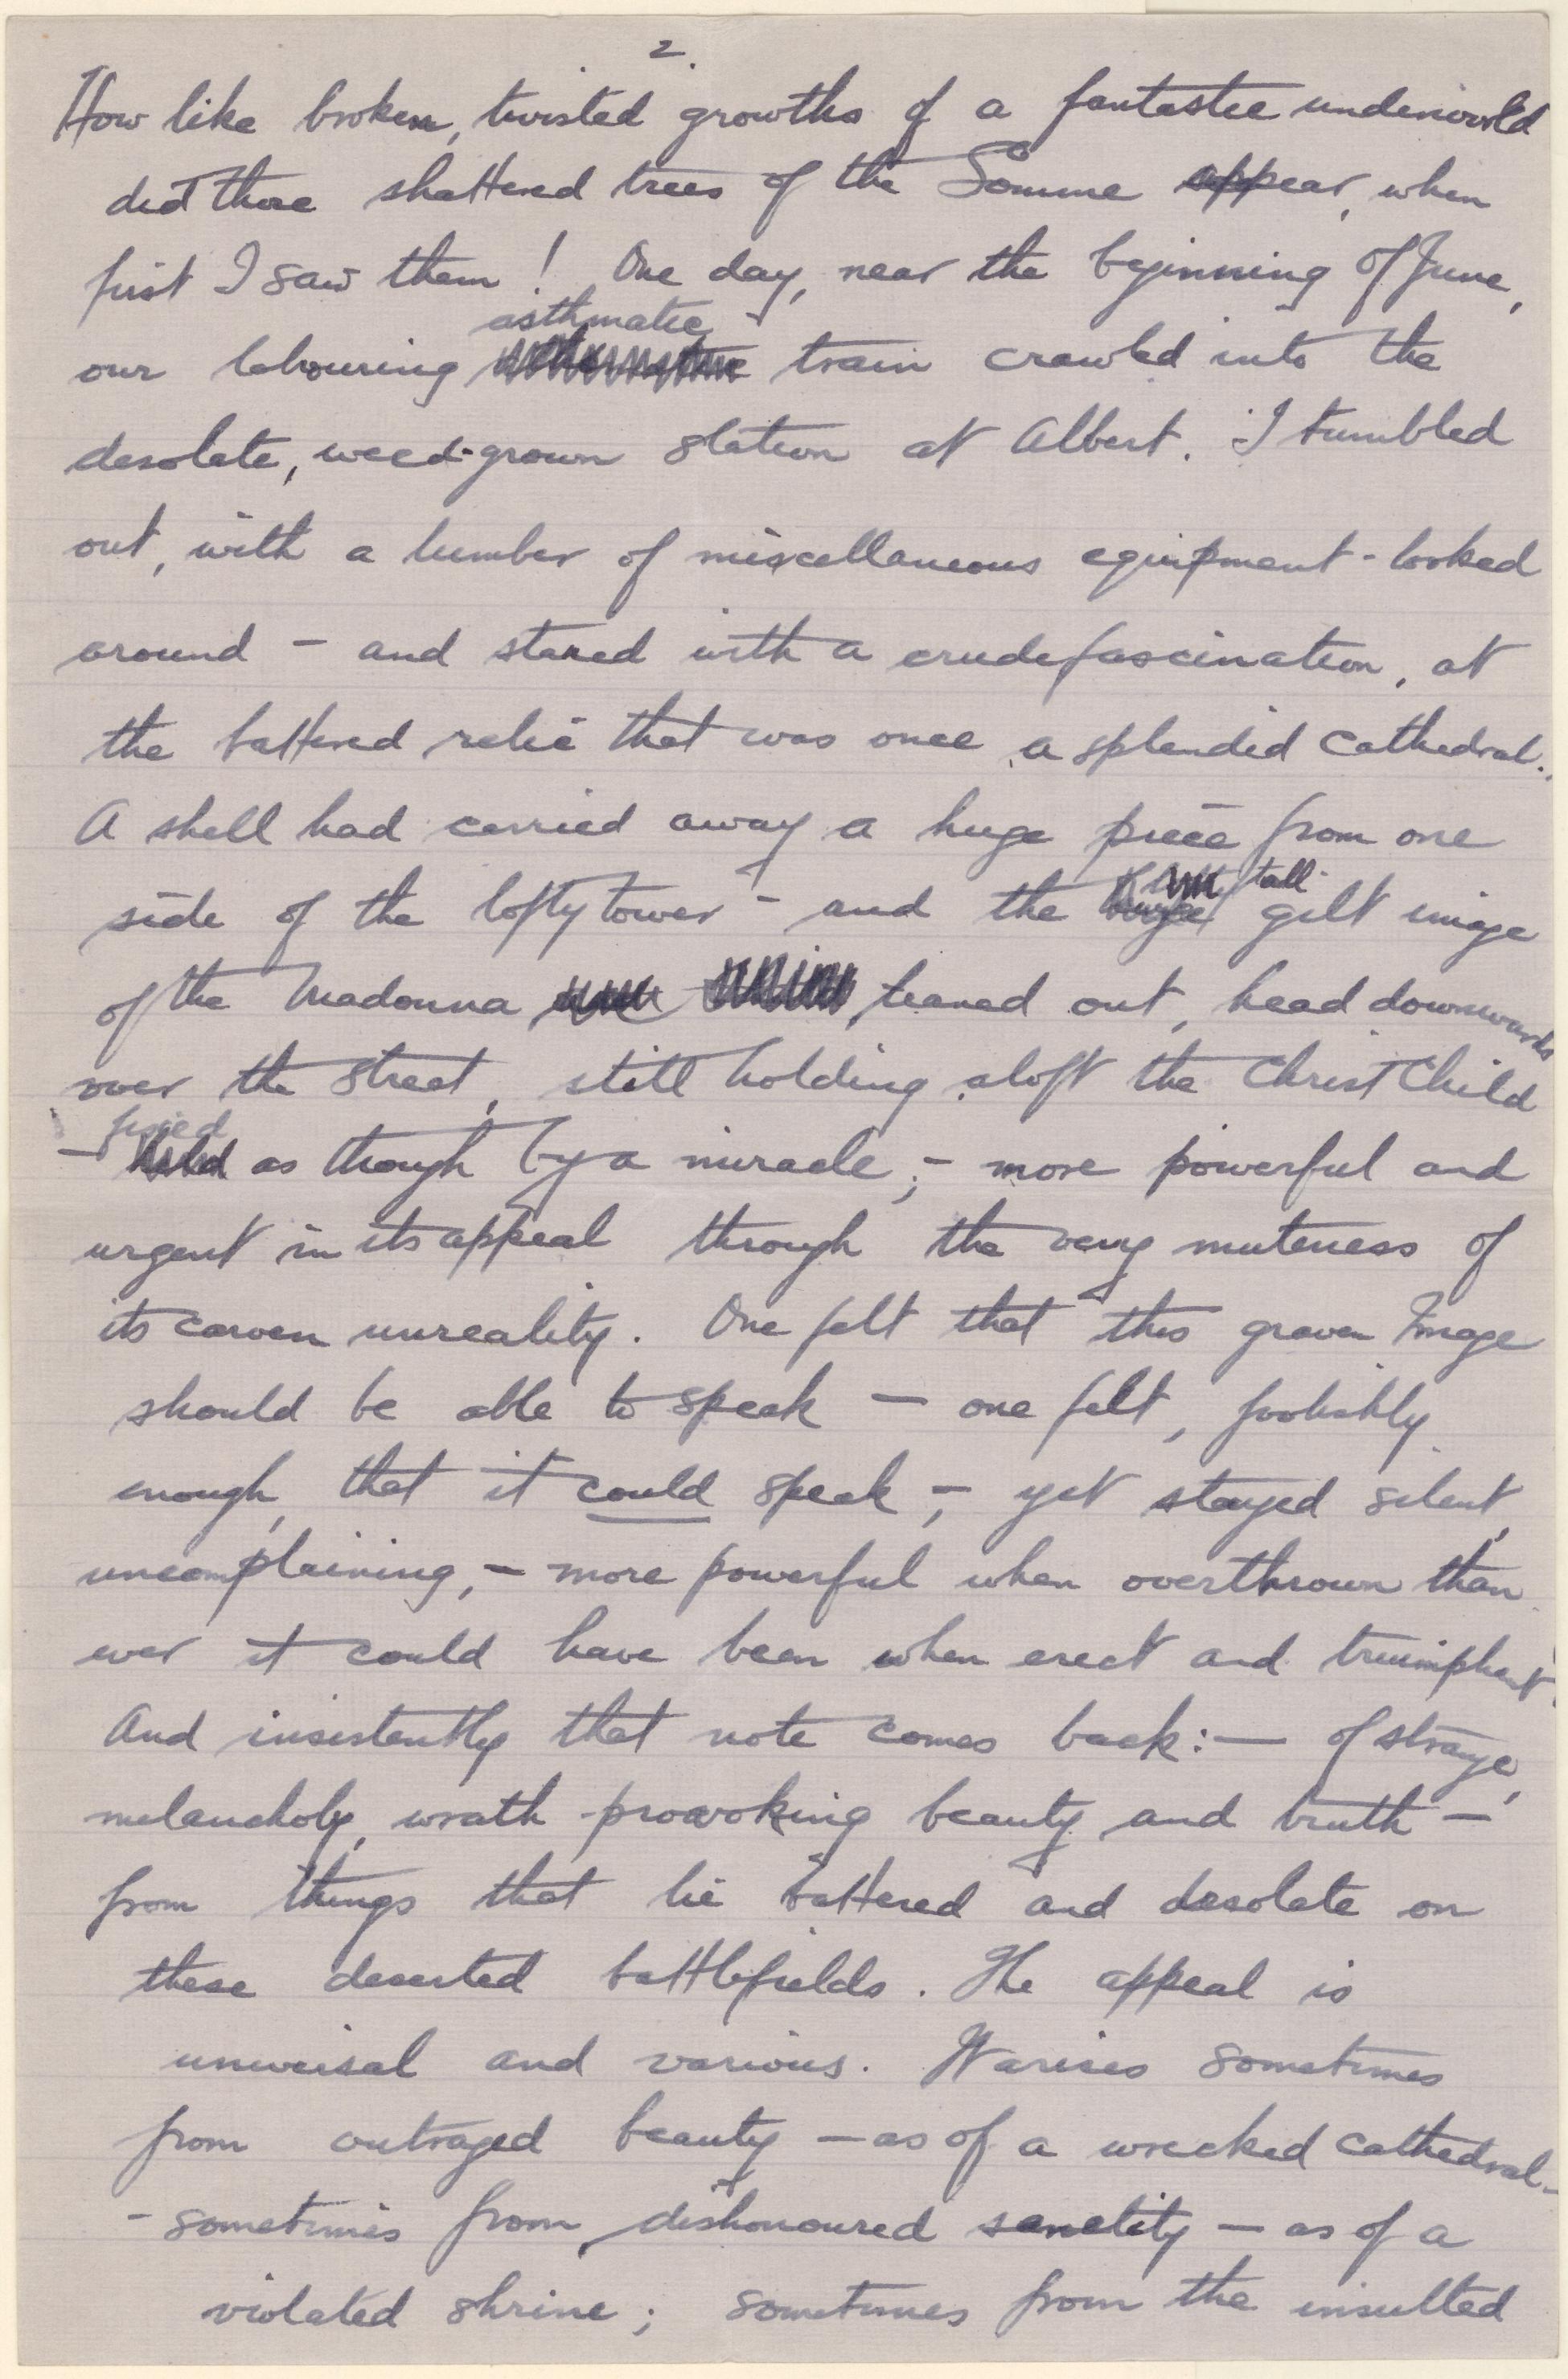 2.
How like broken, twisted growths of a fantastic underworld
did those shattered trees of the Somme appear, when
first I saw them! One day, near the beginning of June,
asthmatic
our labouring train crawled into the
desolate, weed-grown station at Albert. I tumbled
out, with a lumber of miscellaneous equipment - looked
around - and stared with a crude fascination, at
the battered relic that was once a splendid cathedral.
A shell had carried away a huge piece from one
tall
side of the lofty tower - and the huge gilt image
of the Madonna leaned out, head downwards
over the street, still holding aloft the Christ Child
fixed
- held as though by a miracle; - more powerful and
urgent in its appeal through the very muteness of
its carven unreality. One felt that this graven Image
should be able to speak - one felt, foolishly
enough, that it could speak -, yet stayed silent,
uncomplaining, - more powerful when overthrown than
ever it could have been when erect and triumphant.
And insistently that note comes back: - of strange,
melancholy, wrath-provoking beauty and truth -
from things that lie battered and desolate on
these deserted battlefields. The appeal is
universal and various. It arises sometimes
from outraged beauty - as of a wrecked cathedral -
- sometimes from dishonoured sanctity - as of a
violated shrine; sometimes from the insulted